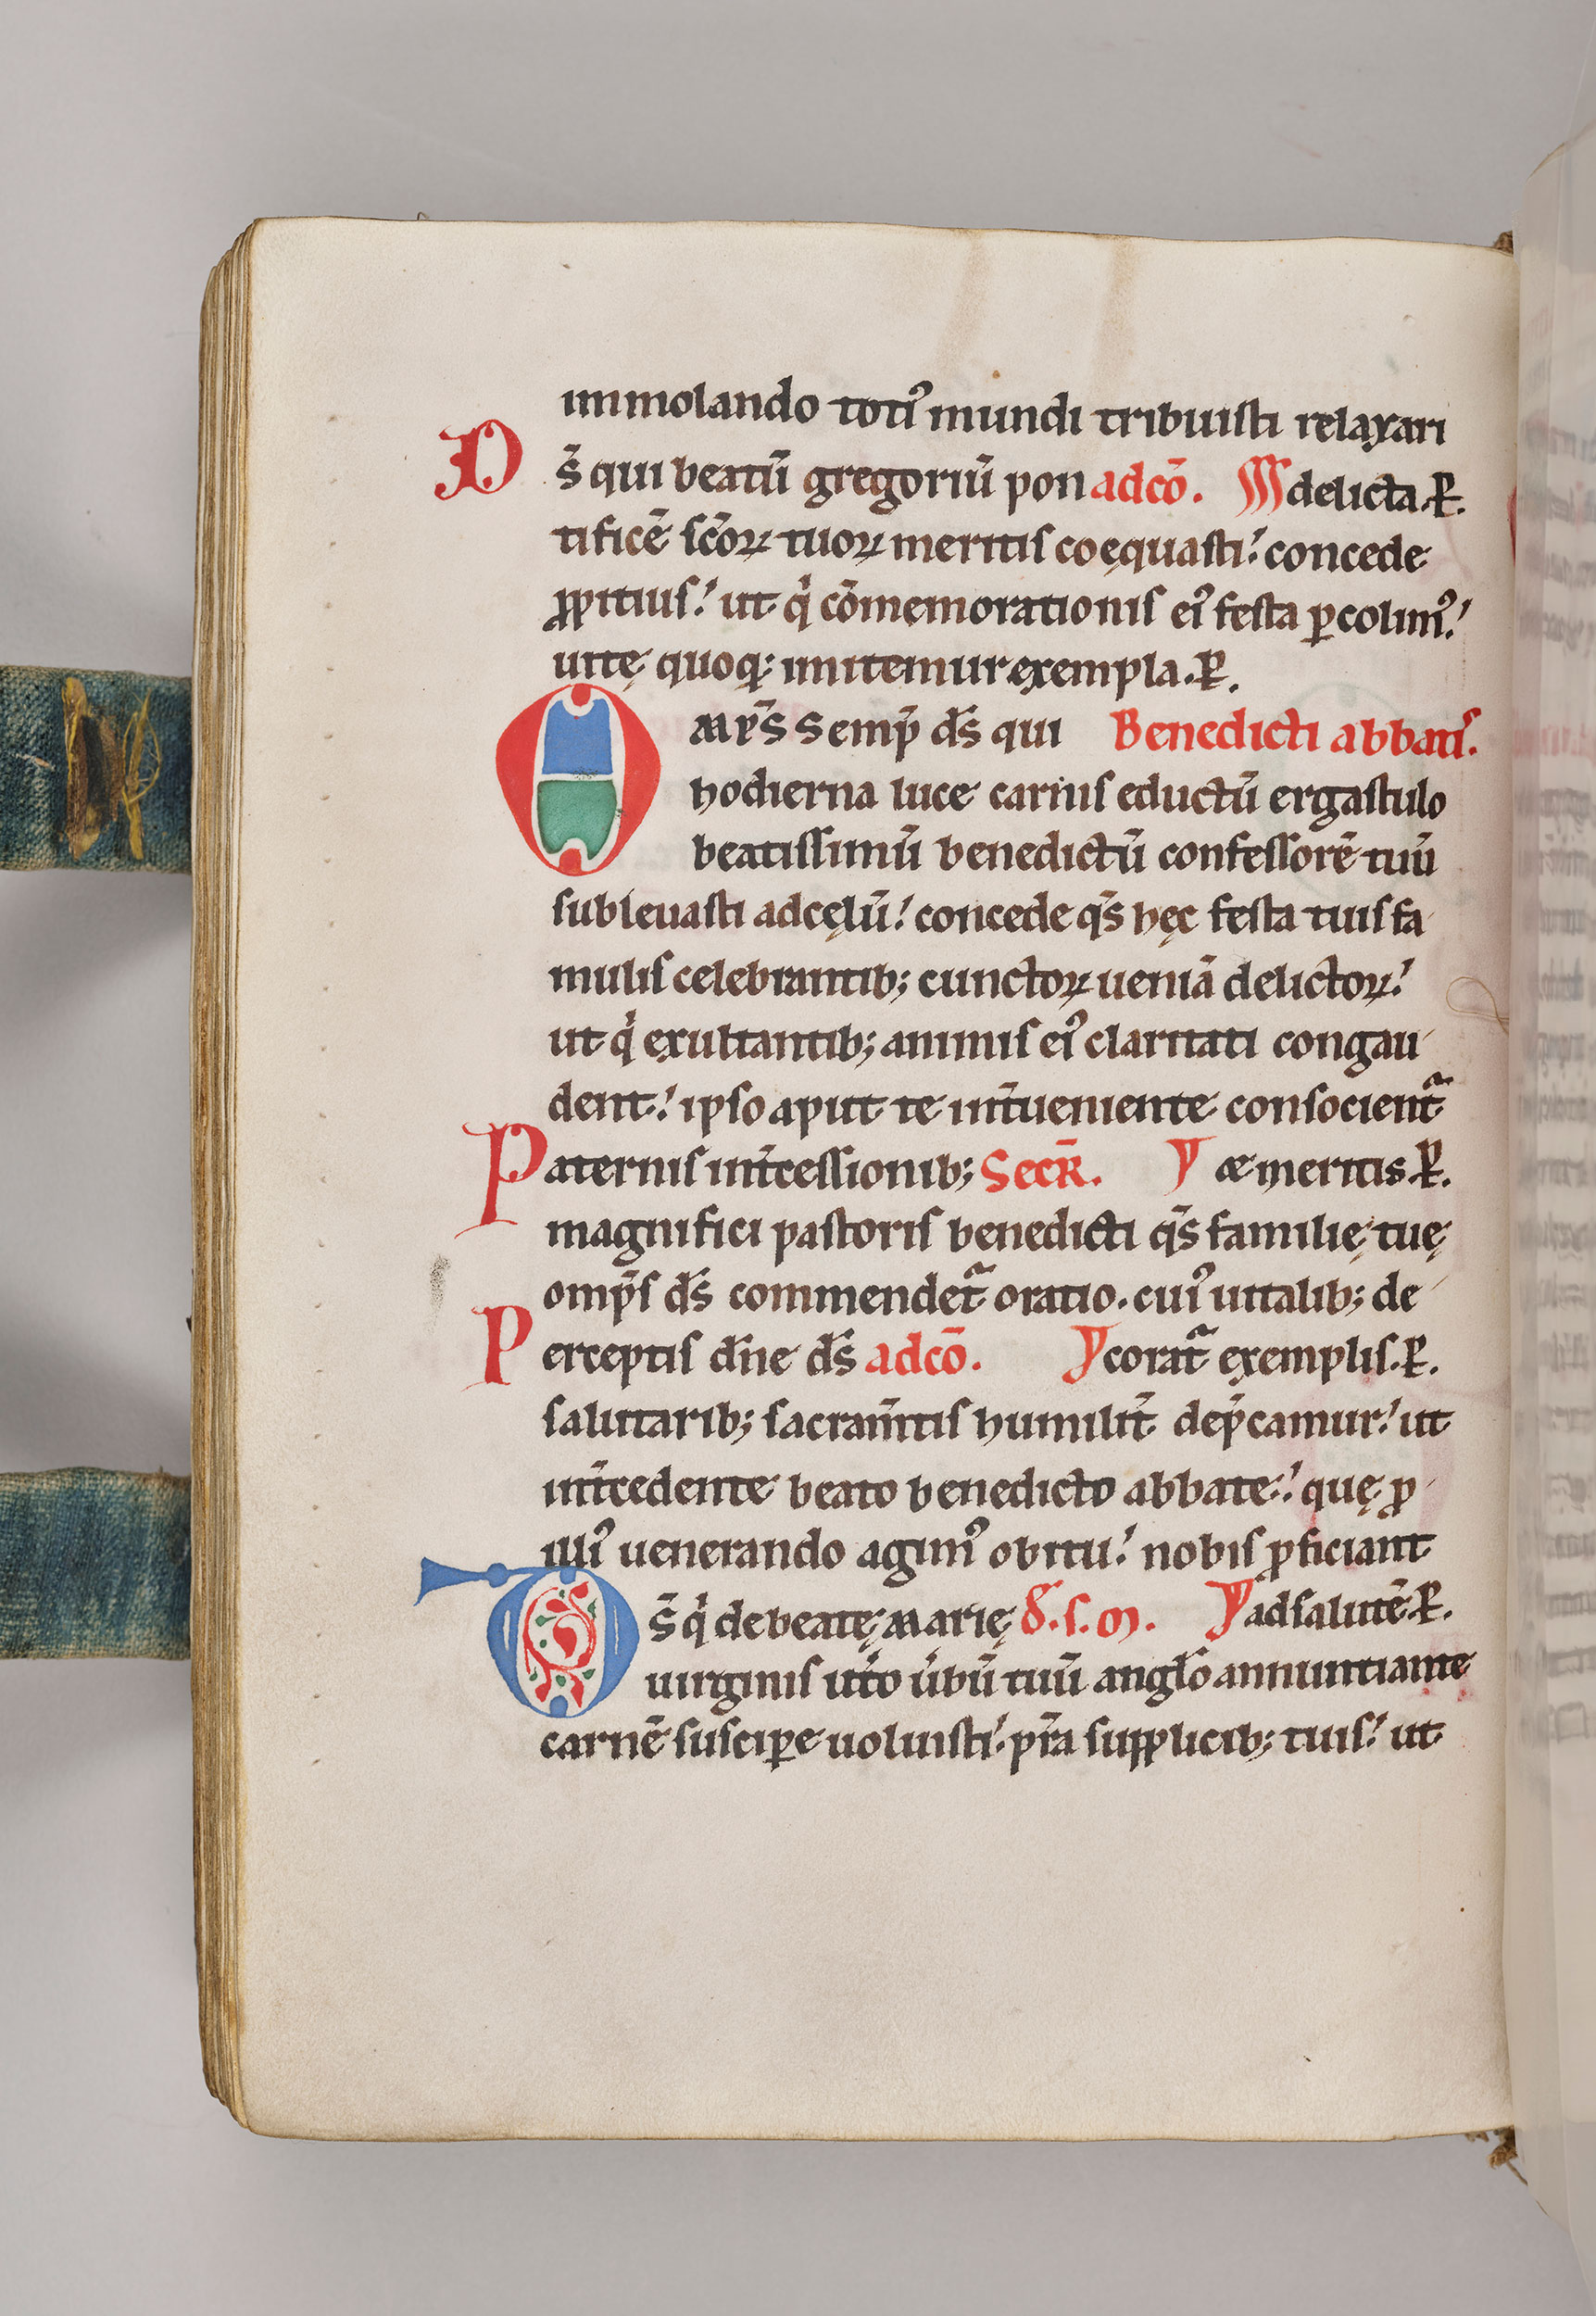 immolando toti᾽ mundi tribuisti relaxari
Ds̄ qui beatū gregoriū pon adcō. delicta. P.
tificē scōꝝ tuoꝝ meritis coęquasti: concede
ꝓpitius: ut q̇ cōmemorationis ei᾽ festa ꝑcolim᾽:
uitę quoq; imitemur exempla. P.
OMPS̄ Semp̄ ds̄ qui Benedicti abbatis.
hodierna luce carnis eductū ergastulo
beatissimū benedictū confessorē tuū
subleuasti adcęlū: concede qs̄ hęc festa tuis fa
mulis celebrantib; cunctoꝝ ueniā delictoꝝ:
ut q̇ exultantib; animis ei᾽ claritati congau
dent: ipso aput te int̄ueniente consocient᷑
Paternis int̄cessionib; Secr̄. æ meritis. P.
magnifici pastoris benedicti qs̄ familię tuę
omp̄s ds̄ commendet᷑ oratio. cui᾽ uitalib; de
Perceptis dn̄e ds̄ adcō. corat᷑ exemplis. P.
salutarib; sacram̄tis humilit̄ dep̄camur: ut
int̄cedente beato benedicto abbate: quę ꝓ
illi᾽ uenerando agim᾽ obitu: nobis ꝓficiant
Ds̄ q̇ de beatę Marię δ. s. m. ad salutē. P.
uirginis ut̄o ūbū tuū angl̄o annuntiante
carnē suscipe uoluisti: p̄ta supplicib; tuis: ut